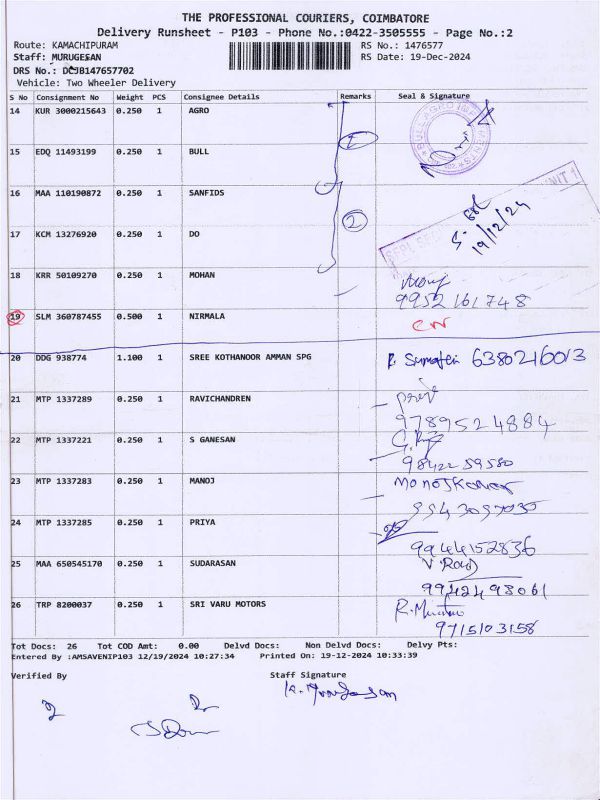 THE PROFESSIONAL COURIERS, COIMBATORE
Delivery Runsheet - P103 - Phone No.:0422-3505555 - Page No.:2
Route: KAMACHIPURAM RS No.: 1476577
Staff: MURUGESAN RS Date: 19-Dec-2024
DRS No.: DCJB147657702
Vehicle: Two Wheeler Delivery
S No Consignment No Weight PCS Consignee Details Remarks Seal & Signature
14 KUR 3000215643 0.250 1 AGRO
15 EDQ 11493199 0.250 1 BULL
16 MAA 110190872 0.250 1 SANFIDS
2
19/12/24
17 KCM 13276920 0.250 1 DO
18 KRR 50109270 0.250 1 MOHAN
9952161748
19 SLM 360787455 0.500 1 NIRMALA
20 DDG 938774 1.100 1 SREE KOTHANOOR AMMAN SPG 6380216013
21 MTP 1337289 0.250 1 RAVICHANDREN
9789524884
22 MTP 1337221 0.250 1 S GANESAN
9842259580
23 MTP 1337283 0.250 1 MANOJ
9943097035
24 MTP 1337285 0.250 1 PRIYA
9944152836
25 MAA 650545170 0.250 1 SUDARASAN
9942498061
26 TRP 8200037 0.250 1 SRI VARU MOTORS
9715103158
Tot Docs: 26 Tot COD Amt: 0.00 Delvd Docs: Non Delvd Docs: Delvy Pts:
Entered By :AMSAVENIP103 12/19/2024 10:27:34 Printed On: 19-12-2024 10:33:39
Verified By Staff Signature